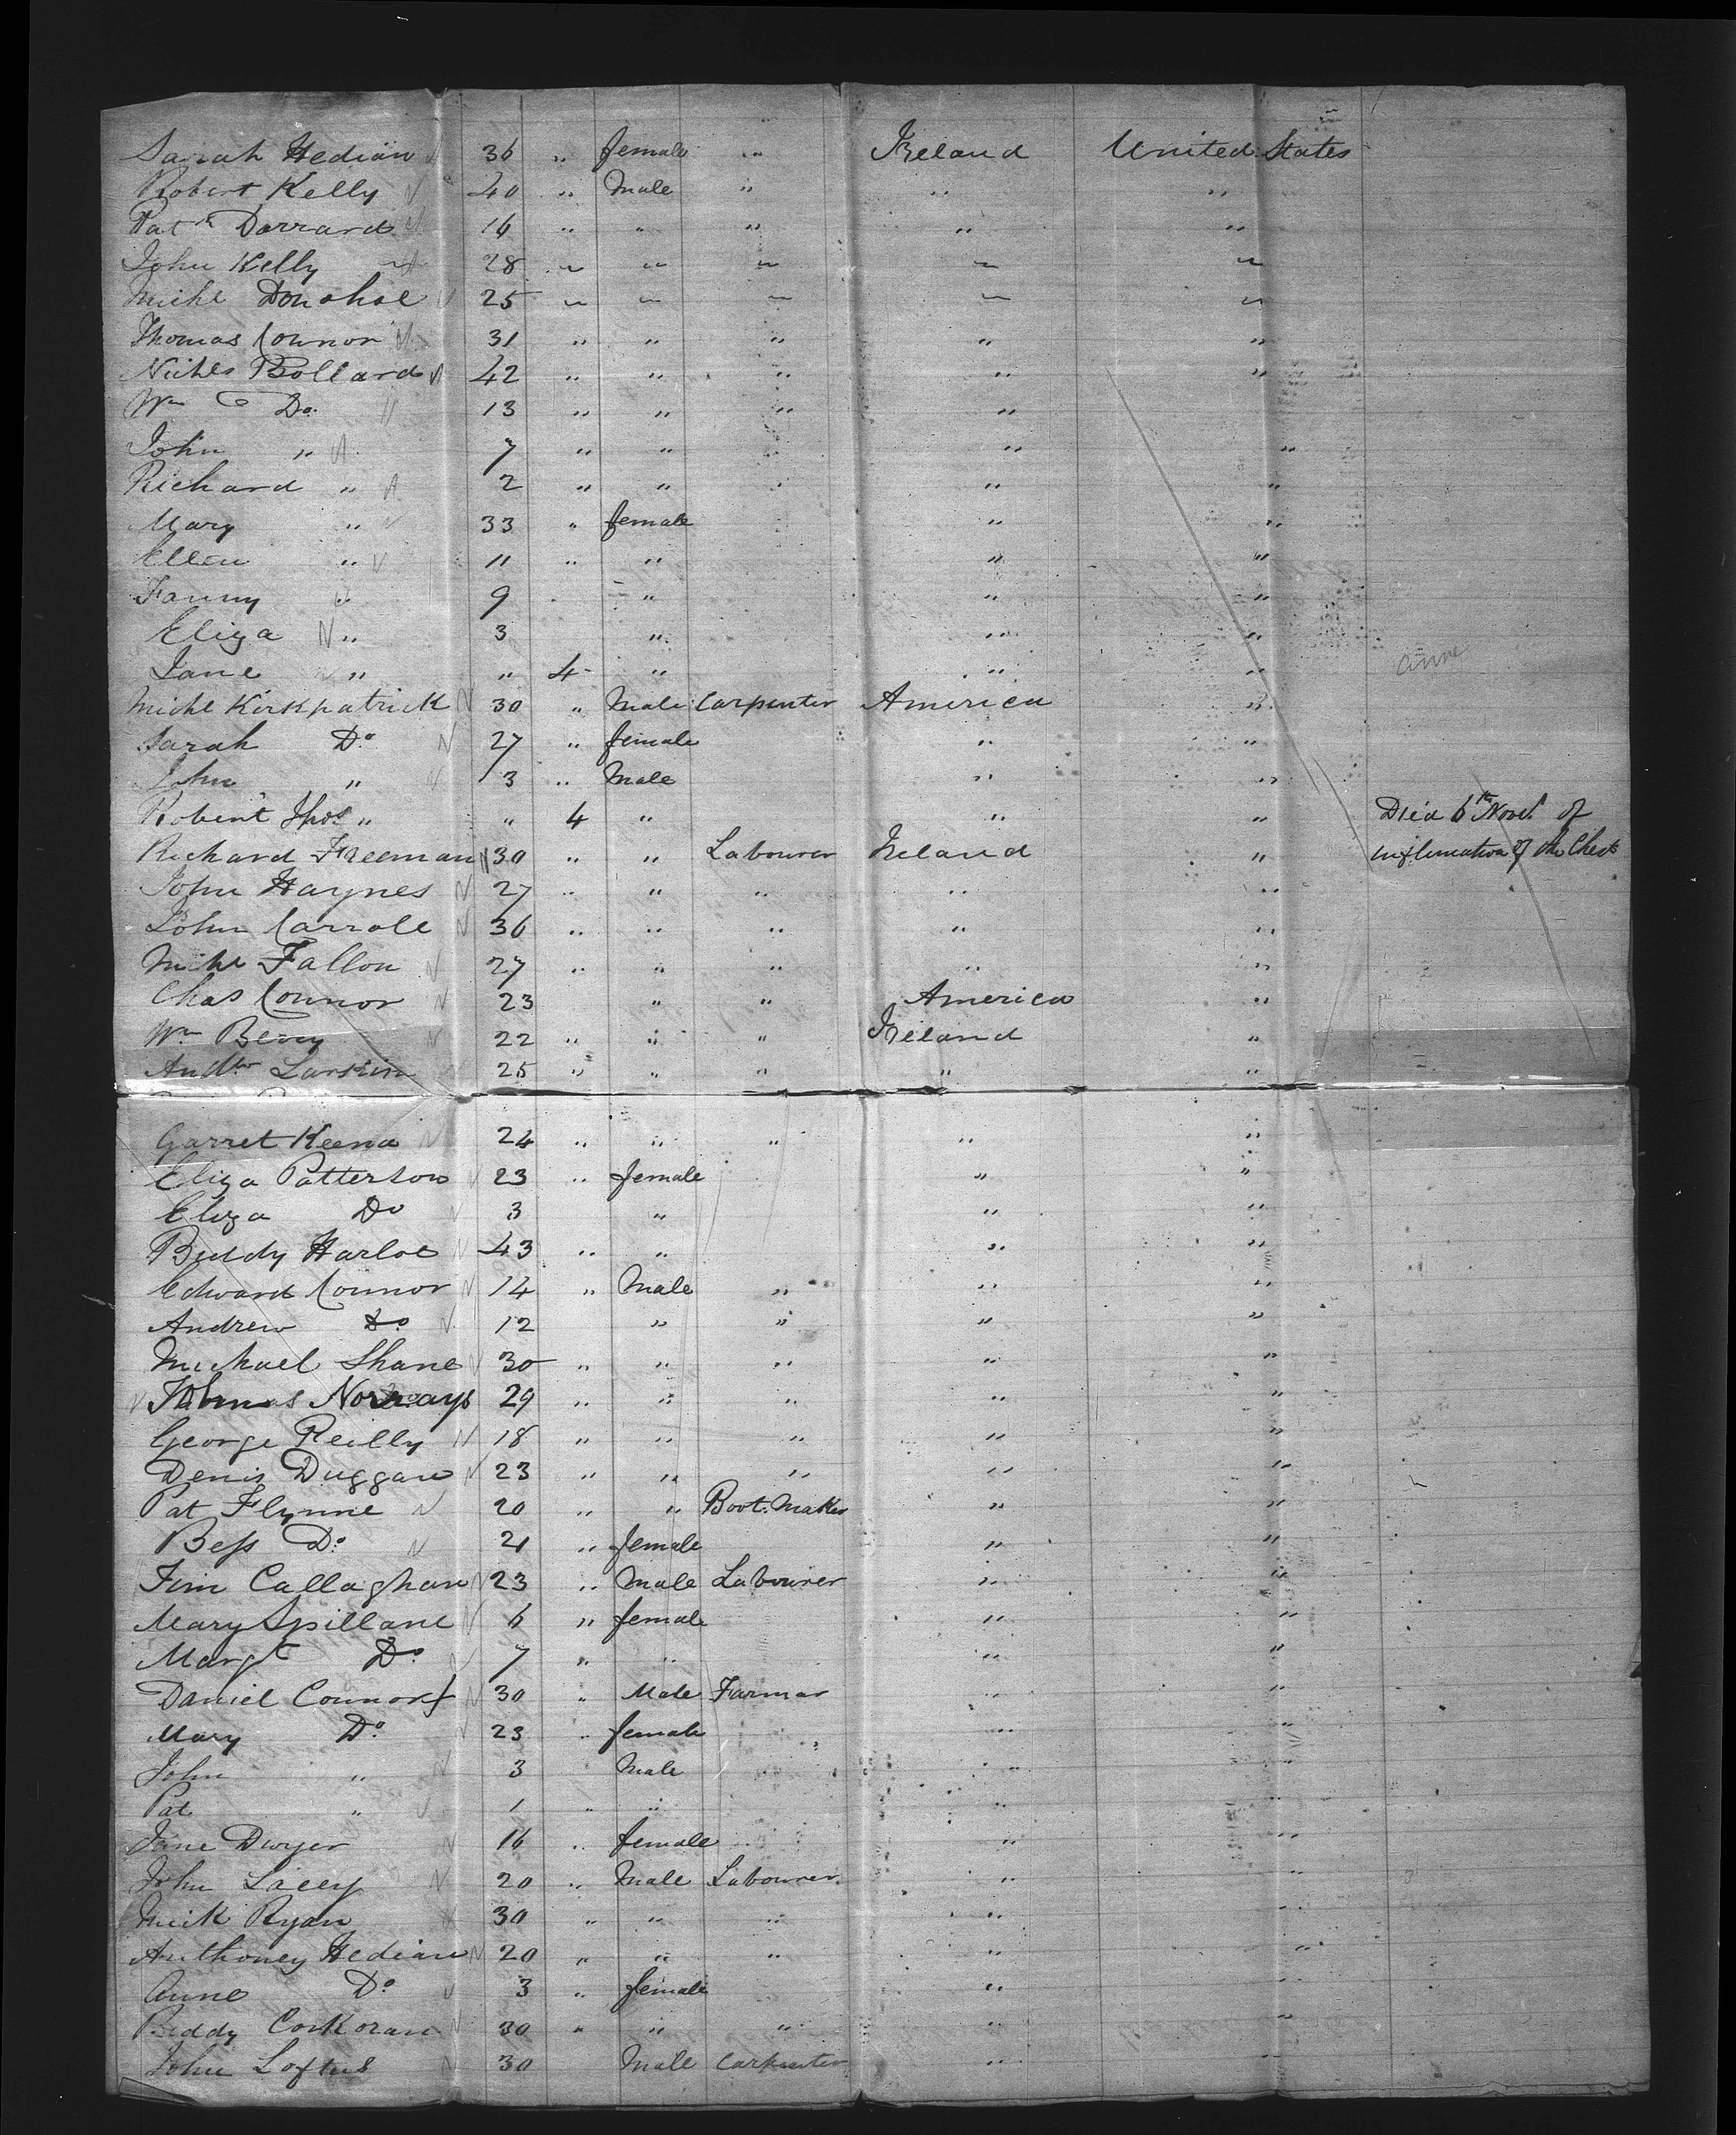 Sarah Hedian 36 " female " Ireland United States
Robert Kelly 40 " Male " " "
Patk Darrard 16 " " " " "
John Kelly 28 " " " " "
Michl Donohoe 25 " " " " "
Thomas Connor 31 " " " " "
Nichls Bollard 42 " " " " "
Wm Do. 13 " " " "
John " 7 " " " "
Richard " 2 " " " "
Mary " 33 " female " "
Ellen " 11 " " " "
Fanny " 9 " " "
Eliza " 3 " " "
Jane " " 4 " " " Anne
Michl Kirkpatrick 30 " Male Carpenter America "
Sarah Do 27 " female " "
John " 3 " Male " "
Robert Thos " " 4 " " " Died 6th Novr. of
Richard Freeman 30 " " Labourer Ireland " inflimation of the Chest
John Haynes 27 " " " " "
John Carroll 36 " " " " "
Michl Fallon 27 " " " " "
Chas Connor 23 " " America "
Wm Berry 22 " " " Ireland "
Andw Larkin 25 " " " " "
Garret Keena 24 " " " " "
Eliza Patterson 23 " female " "
Eliza Do 3 " " "
Biddy Harloe 43 " " " "
Edward Connor 14 " Male " " "
Andrew Do 12 " " " "
Michael Shane 30 " " " " "
Norrays 29 " " " " "
George Reilly 18 " " " " "
Denis Duggan 23 " " " " "
Pat Flynne 20 " " Boot Maker " "
Bess Do 21 " female " "
Tim Callaghan 23 " Male Labourer " "
Mary Spillane 6 " female " "
Margt Do 7 " " " "
Daniel Connor 30 " Male Farmar " "
Mary Do 23 " female " "
John " 3 Male " "
Pat " 1 " " " "
Jane Dwyer 16 " female " "
John Lacey 20 " Male Labourer " "
Mick Ryan 30 " " " " "
Anthoney Hedian 20 " " " " "
Anne Do 3 " female " "
Biddy Corkoran 30 " " " " "
John Loftus 30 Male Carpenter " "